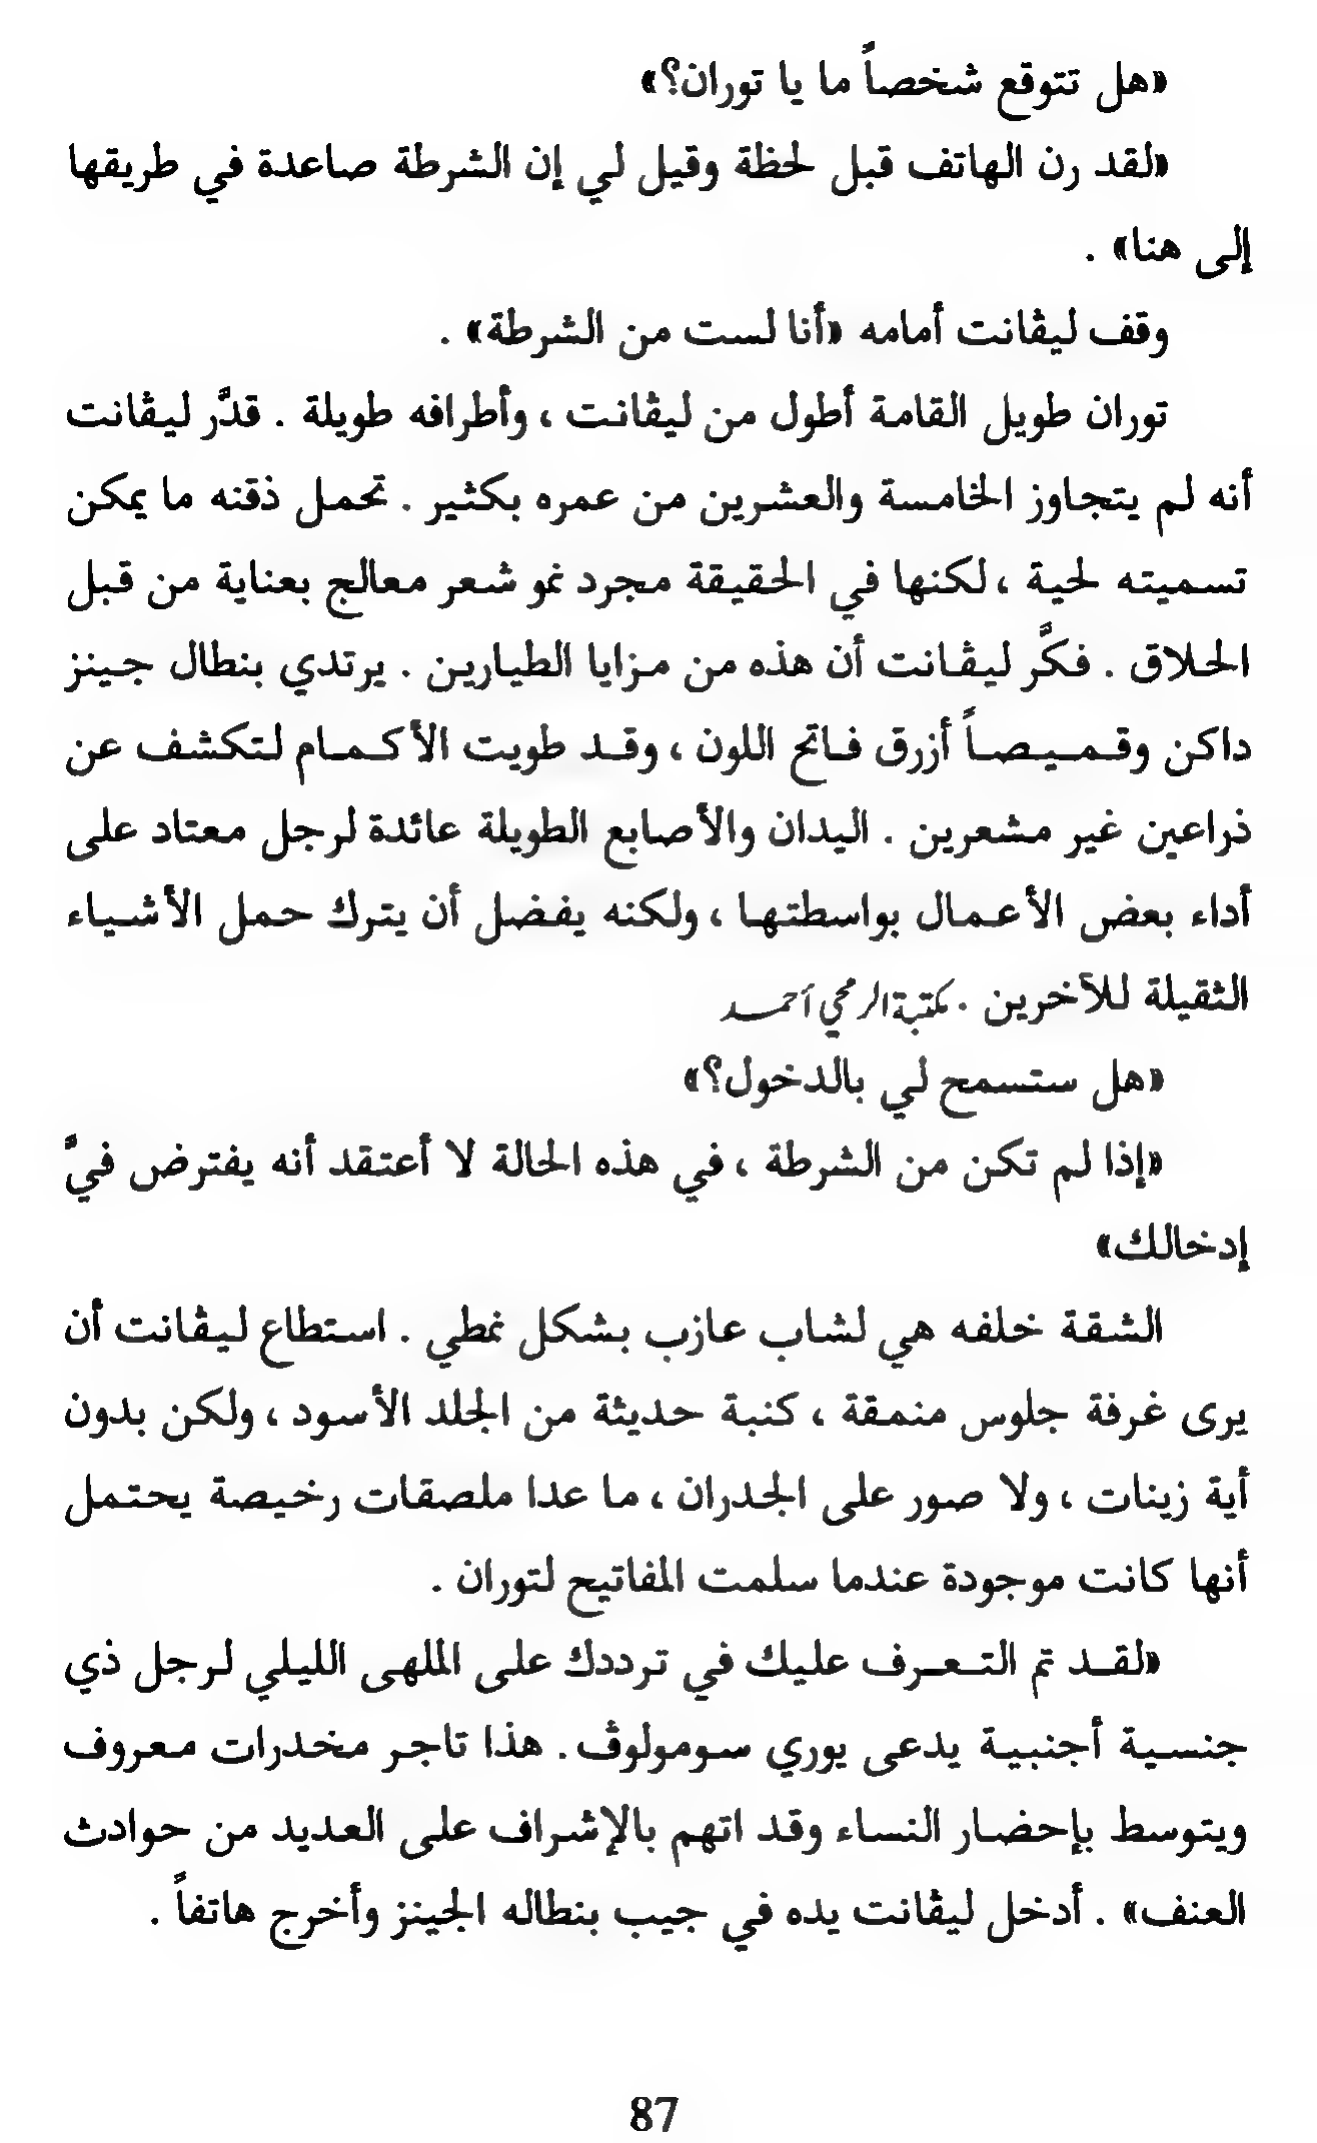 «هل تتوقع شخصاً ما يا توران؟»
«لقد رن الهاتف قبل لحظة وقيل لي إن الشرطة صاعدة في طريقها
إلى هنا» .
وقف ليڤانت أمامه «أنا لست من الشرطة» .
توران طويل القامة أطول من ليڤانت ، وأطرافه طويلة . قدَّر ليڤانت
أنه لم يتجاوز الخامسة والعشرين من عمره بكثير . تحمل ذقنه ما يمكن
تسميته لحية ، لكنها في الحقيقة مجرد نمو شعر معالج بعناية من قبل
الحلاق . فكَّر ليڤانت أن هذه من مزايا الطيارين . يرتدي بنطال جينز
داكن وقميصاً أزرق فاتح اللون ، وقد طويت الأكمام لتكشف عن
ذراعين غير مشعرين . اليدان والأصابع الطويلة عائدة لرجل معتاد على
أداء بعض الأعمال بواسطتها ، ولكنه يفضل أن يترك حمل الأشياء
الثقيلة للآخرين . مكتبة الرمحي أحمد
«هل ستسمح لي بالدخول؟»
«إذا لم تكن من الشرطة ، في هذه الحالة لا أعتقد أنه يفترض فيَّ
إدخالك»
الشقة خلفه هي لشاب عازب بشكل نمطي . استطاع ليڤانت أن
يرى غرفة جلوس منمقة ، كنبة حديثة من الجلد الأسود ، ولكن بدون
أية زينات ، ولا صور على الجدران ، ما عدا ملصقات رخيصة يحتمل
أنها كانت موجودة عندما سلمت المفاتيح لتوران .
«لقد تم التعرف عليك في ترددك على الملهى الليلي لرجل ذي
جنسية أجنبية يدعى يوري سومولوڤ . هذا تاجر مخدرات معروف
ويتوسط بإحضار النساء وقد اتهم بالإشراف على العديد من حوادث
العنف» . أدخل ليڤانت يده في جيب بنطاله الجينز وأخرج هاتفاً .
87